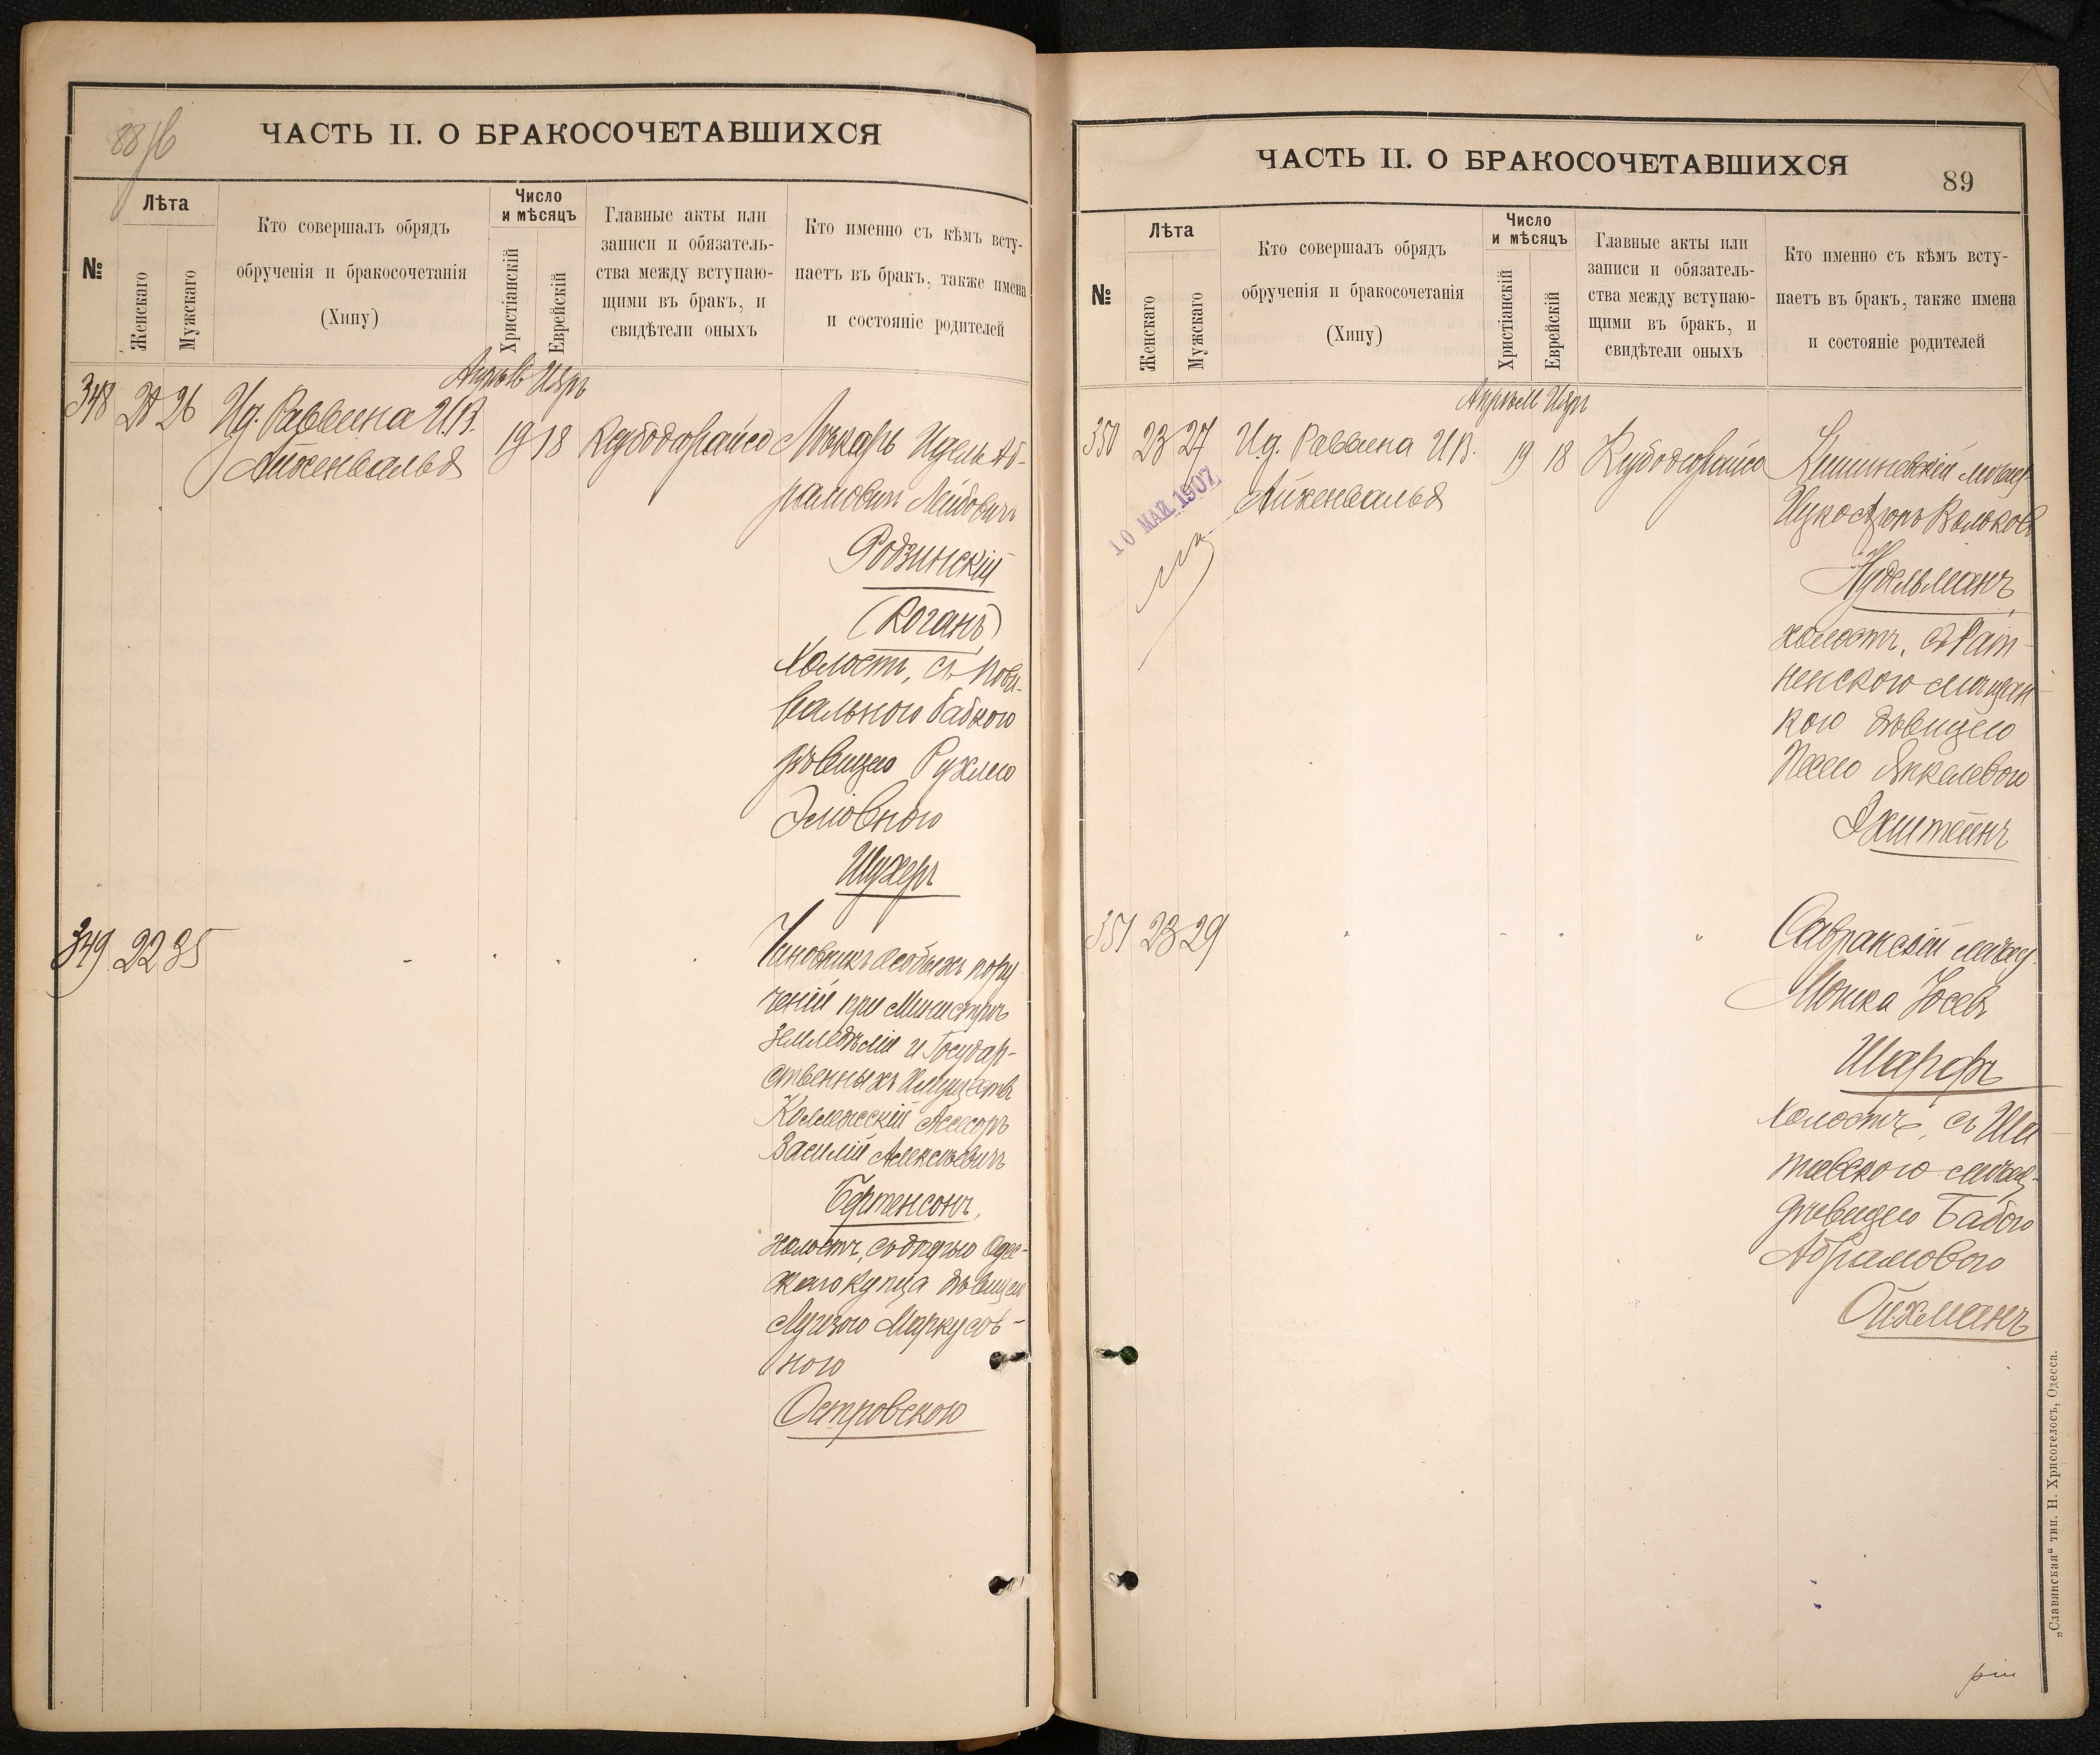 88 об
ЧАСТЬ II. О БРАКОСОЧЕТАВШИХСЯ
№
Лѣта
Женскаго
Мужскаго
Кто совершалъ обрядъ
обрученія и бракосочетанія
(Хипу)
Число
и мѣсяцъ
Христіанскій
Еврейскій
Главные акты или
записи и обязатель-
ства между вступаю-
щими въ бракъ, и
свидѣтели оныхъ
Кто именно съ кѣмъ всту-
паетъ въ бракъ, также имена
и состояніе родителей
Апрѣль Ияръ
348 28 26 И.д. Раввина И.В.
Айженвальд
19 18
Лѣкарь Идель Аб-
рамович Лейбович
Родзинскій
(Коганъ)
Холост, съ пови-
вального бабкою
дѣвицею Рухлею
Шухеръ
349 22 35
Чиновникъ особыхъ пору
ченій при Министрѣ
земледѣлія и Государ-
ственныхъ Имуществъ
Коллежскій Асессоръ
Василій Алексѣевичъ
Бертенсонъ,
холостъ, съ дочерью Одес-
скаго купца дѣвицею
Луизою Маркусов-
ною
Островскою
ЧАСТЬ II. О БРАКОСОЧЕТАВШИХСЯ
89
№
Лѣта
Женскаго
Мужскаго
Кто совершалъ обрядъ
обрученія и бракосочетанія
(Хипу)
Число
и мѣсяцъ
Христіанскій
Еврейскій
Главные акты или
записи и обязатель-
ства между вступаю-
щими въ бракъ, и
свидѣтели оныхъ
Кто именно съ кѣмъ всту-
паетъ въ бракъ, также имена
и состояніе родителей
Апрѣль Ияръ
350 23 27 И.д. Раввина И.В.
Айженвальд
19 18
10 МАЙ 1907
Кишиневскій мѣщ
Нудельманъ
холостъ, съ Рат-
ненского мѣщан-
кою дѣвицею
Песею Янкелевою
Эпштейнъ
351 23 29
Савранскій мѣщ.
Мошка Іосев
Шарфъ
холостъ, съ Ши
товского мѣщ.
дѣвицею Бабою
Абрамовою
Ойхманъ
„Славянская“ тип. Н. Хрисогелосъ, Одесса.